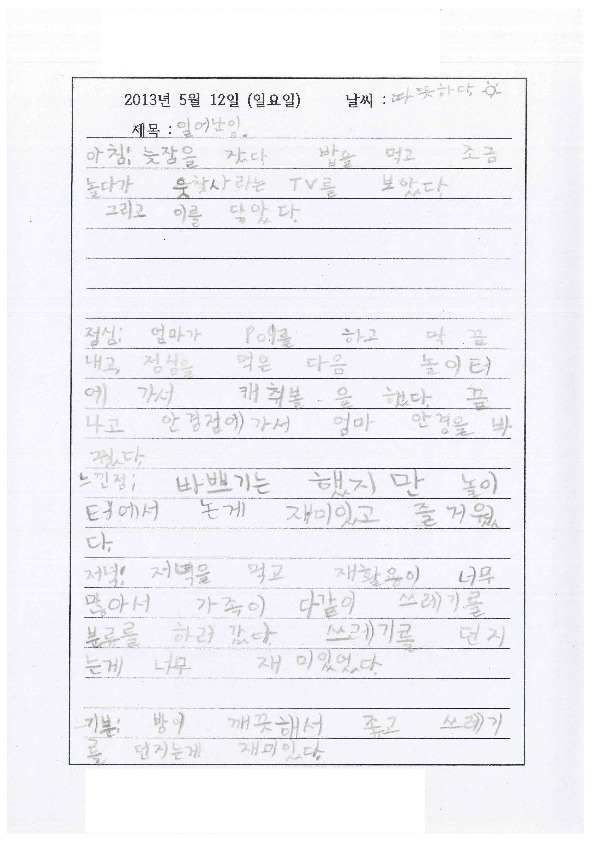 2013년 5월 12일 (일요일) 날씨 : 따뜻하다
제목 : 일어난일.
아침; 늦잠을 잤다 밥을 먹고 조금
놀다가 웃찾사라는 TV를 보았다
그리고 이를 닦았다.
점심; 엄마가 를 하고 딱 끝
내고, 점심을 먹은 다음 놀이터
에 가서 캐취볼 을 했다. 끝
나고 안경점에 가서 엄마 안경을 바
꿨다.
느낀점; 바쁘기는 했지만 놀이
터에서 논게 재미있고 즐거웠
다.
저녁; 저녁을 먹고 재활용이 너무
많아서 가족이 다같이 쓰레기를
분류를 하러 갔다. 쓰레기를 던지
는게 너무 재미있었다.
기분; 방이 깨끗해서 좋고 쓰레기
를 던지는게 재미있다.